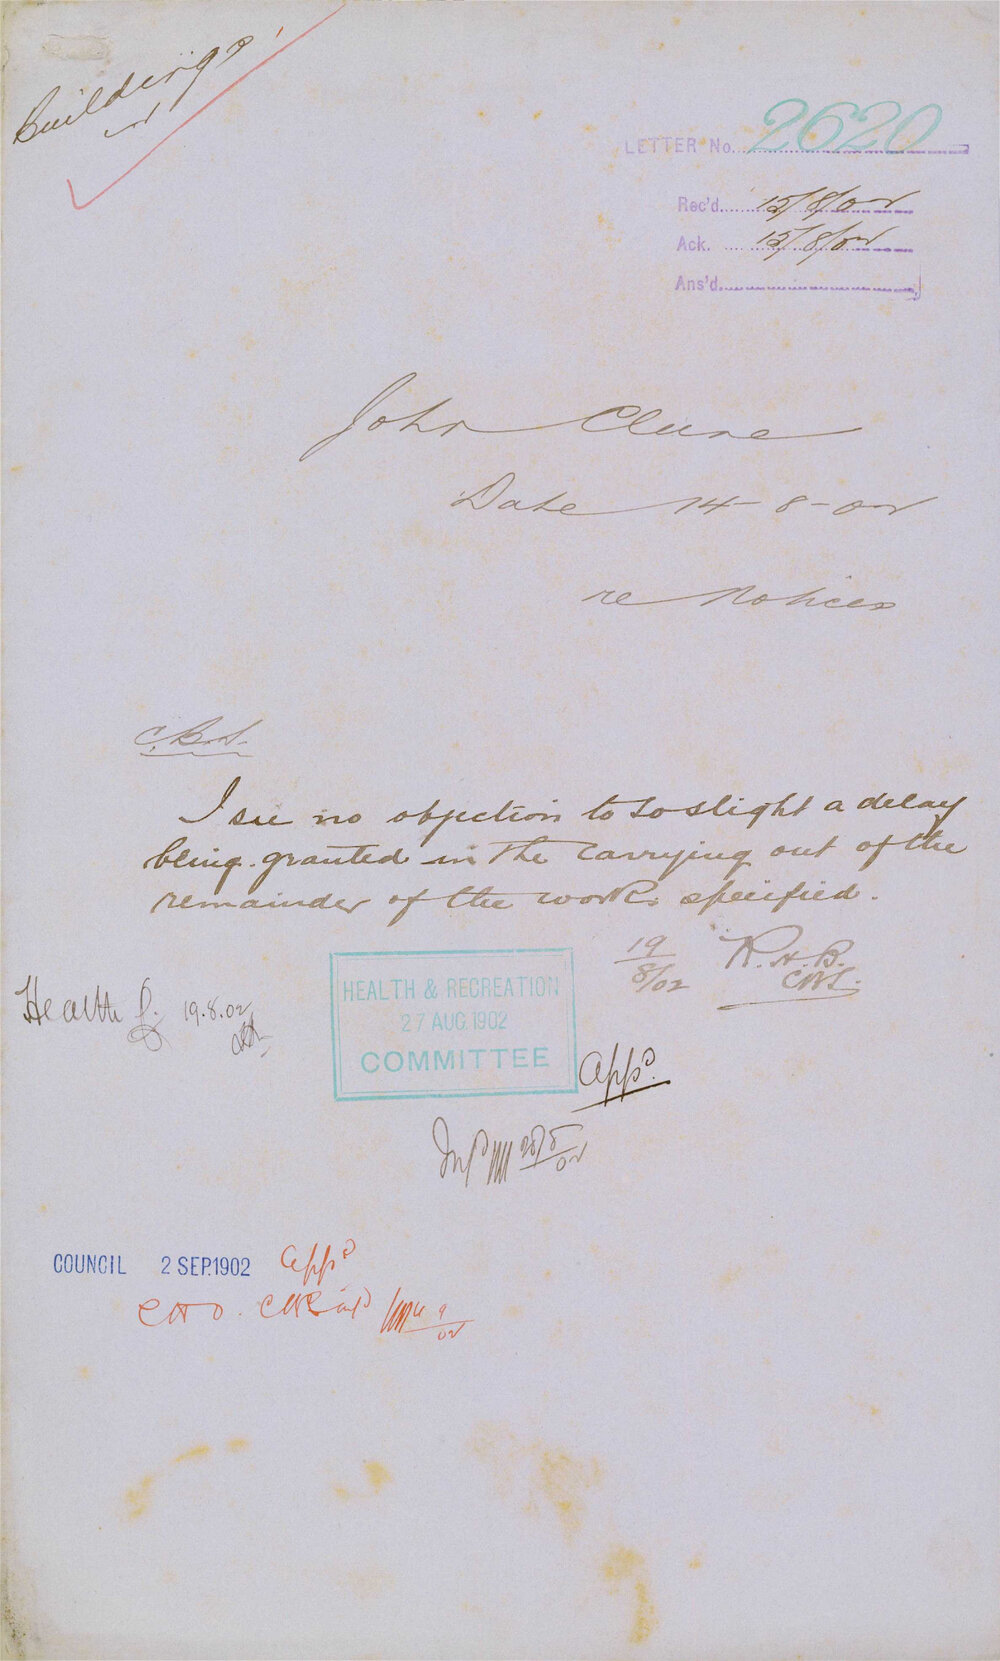 Buildings
LETTER No. 2620
Rec'd. 15/8/02
Ack. 15/8/02
Ans'd.
John Clune
Date 14-8-02
re Notices
C.B.S.
I see no objection to so slight a delay
being granted in the carrying out of the
remainder of the works specified.
19/8/02 R.H.B.
CBS.
Health 19.8.02
HEALTH & RECREATION
27 AUG. 1902
COMMITTEE
Appd.
Infd 28/8/02
COUNCIL 2 SEP. 1902 Appd